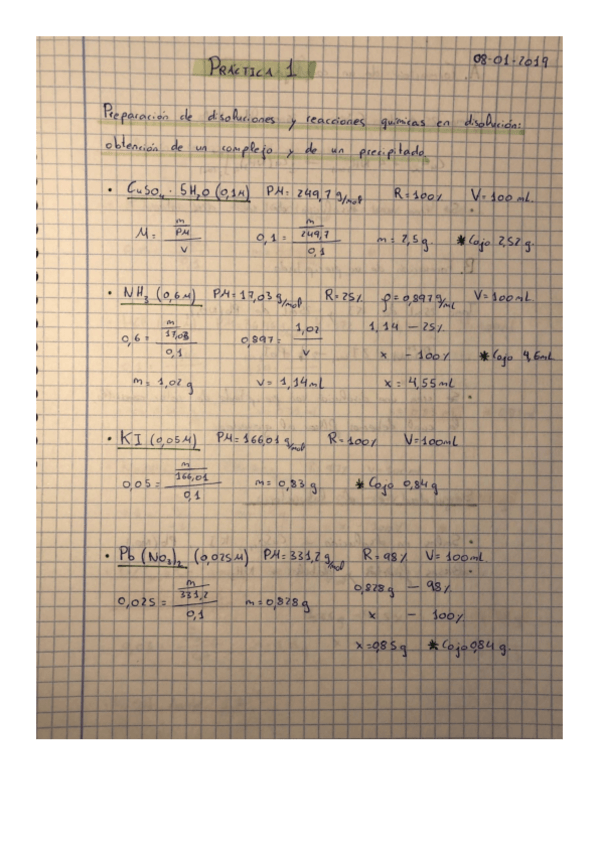 PRÁCTICA 1
08-01-2019
Preparación de disoluciones y reacciones químicas en disolución:
obtención de un complejo y de un precipitado
• CuSO₄ · 5H₂O (0,1M) PM = 249,7 g/mol R = 100% V = 100 mL.
M = (m/PM)/V 0,1 = (m/249,7)/0,1 m = 2,5 g. * Cojo 2,52 g.
• NH₃ (0,6M) PM = 17,03 g/mol R = 25% ρ = 0,897 g/mL V = 100 mL
0,6 = (m/17,03)/0,1 0,897 = 1,02/V 1,14 — 25%
x — 100% * Cojo 4,6mL
m = 1,02 g V = 1,14 mL x = 4,55 mL
• KI (0,05M) PM = 166'01 g/mol R = 100% V = 100mL
0,05 = (m/166,01)/0,1 m = 0,83 g * Cojo 0,84 g
• Pb (NO₃)₂ (0,025M) PM = 331,2 g/mol R = 98% V = 100mL
0,025 = (m/331,2)/0,1 m = 0,828 g 0,828 g — 98%
x — 100%
x = 0,85 g * Cojo 0,84 g.